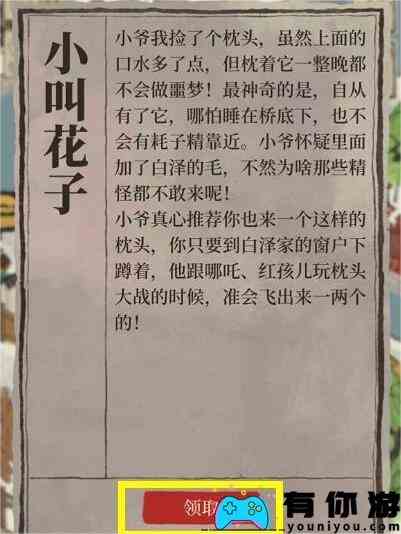 小叫花子
小爷我捡了个枕头，虽然上面的
口水多了点，但枕着它一整晚都
不会做噩梦！最神奇的是，自从
有了它，哪怕睡在桥底下，也不
会有耗子精靠近。小爷怀疑里面
加了白泽的毛，不然为啥那些精
怪都不敢来呢！
小爷真心推荐你也来一个这样的
枕头，你只要到白泽家的窗户下
蹲着，他跟哪吒、红孩儿玩枕头
大战的时候，准会飞出来一两个
的！
领取
有你游
youniyou.com